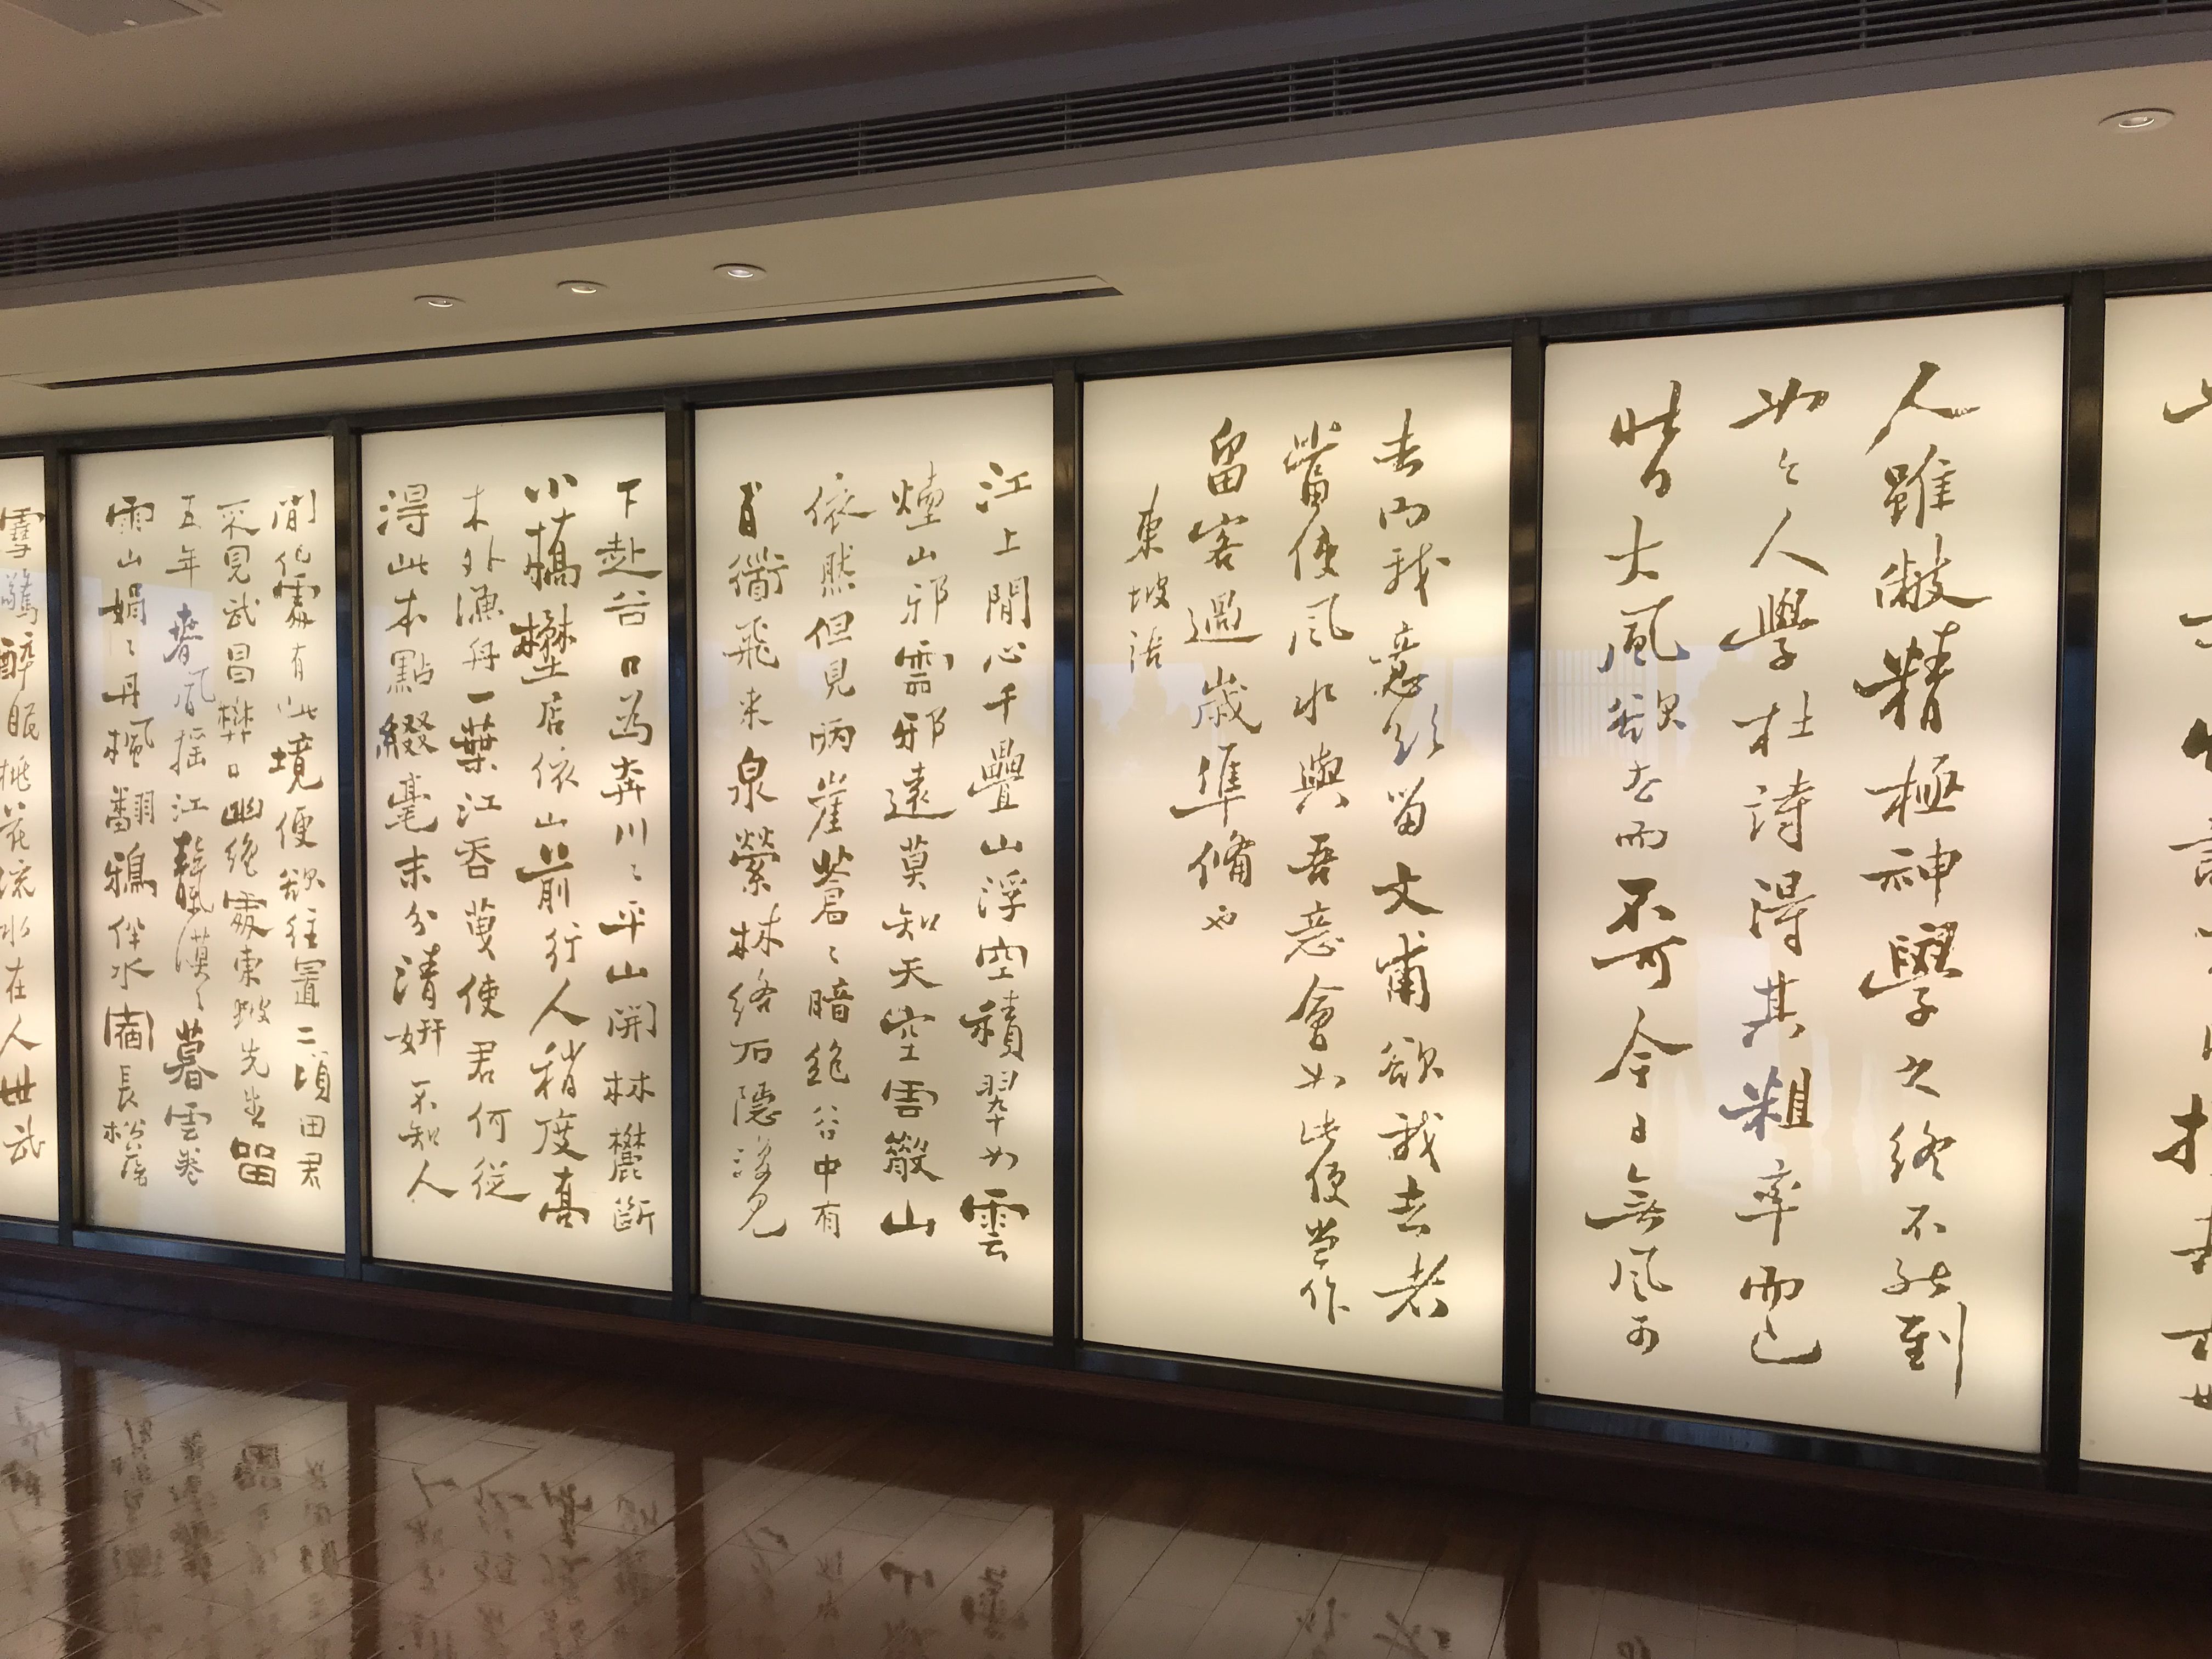 人雖敝精極神學之終不能到
如之人學杜詩得其粗率而已
昔日大風欲去而不可今日無風可
去而我意欲留文甫欲我去者
當使風水與吾意會如此便當作
留客過歲準備也
東坡語
江上愁心千疊山浮空積翠如雲
煙山邪雲邪遠莫知煙空雲散山
依然但見兩崖蒼〻暗絕谷中有
百衜飛來泉縈林絡石隱復見
下赴谷口為奔川〻平山開林麓斷
小橋野店依山前行人稍度喬
木外漁舟一葉江吞天使君何從
得此本點綴毫末分清妍不知人
間何處有此境便欲往置二頃田君
不見武昌樊口幽絕處東坡先生留
五年春風搖江天漠〻暮雲卷
雨山娟〻丹楓翻鴉伴水宿長松落
雪驚醉眠桃花流水在人世武